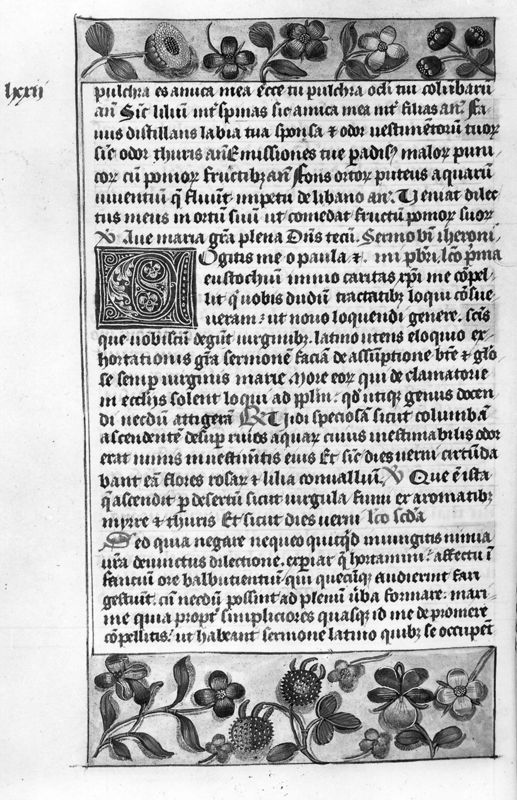 lxxii
pulchra es amica mea ecce tu pulchra oculi tui columbarū
an̄ Sic̄ liliū int̄ spinas sic amica mea int̄ filias an̄. Fa
uus distillans labia tua sponsa & odor uestimētorū tuoꝝ
sic̄ odor thuris an̄ Emissiones tue ꝑadisꝰ maloꝝ puni
coꝝ cū pomoꝝ fructibꝫ an̄ Fons ortoꝝ puteus aquarū
uiuentiū q̄ fluūt impetu de libano an̄. Ueniat dilec
tus meus in ortū suū ut comedat fructū pomoꝝ suoꝝ
℣ Aue maria gr̄a plena Dn̄s tecū. Sermo bt̄i iheroni
Cogitis me o paula & mi pbr̄i. lc̄o p̄ma
eustochiū immo caritas xp̄i me cōpel
lit q̄ uobis dudū tractatibꝫ loqui cōsue
ueram: ut nouo loquendi genere. sc̄is
que uobiscū degūt uirginibꝫ. latino utens eloquio ex
hortationis gr̄a sermonē faciā de assūptione bt̄e & glo
se semp̄ uirginis marie More eoꝝ qui declamatorie
in eccl̄iis solent loqui ad pplm̄: qd̄ utiqꝫ genus docen
di necdū attigerā ℟ Uidi speciosā sicut columbā
ascendentē desup̄ riuos aquaꝝ cuius inestimabilis odor
erat nimis in uestimētis eius Et sic̄ dies uerni circūda
bant eā flores rosaꝝ & lilia conualliū. ℣ Que ē ista
q̄ ascendit ꝑ desertū sicut uirgula fumi ex aromatibꝫ
myrre & thuris Et sicut dies uerni lc̄o scd̄a
Sed quia negare nequeo quitq̄d iniungitis nimia
ur̄a deuinctus dilectione. exꝑiar q̄ hortamini: affectu ī
fantiū ore balbutientiū qui quecūqꝫ audierint fari
gestiūt. cū necdū possint ad plenū ūba formare. maxi
me quia propt̄ simpliciores quasqꝫ id me depromere
cōpellitis: ut habeant sermonē latino quibꝫ se occupēt